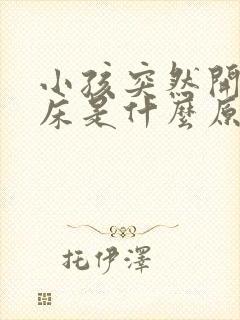 小孩突然開
床是什麼原
托伊澤